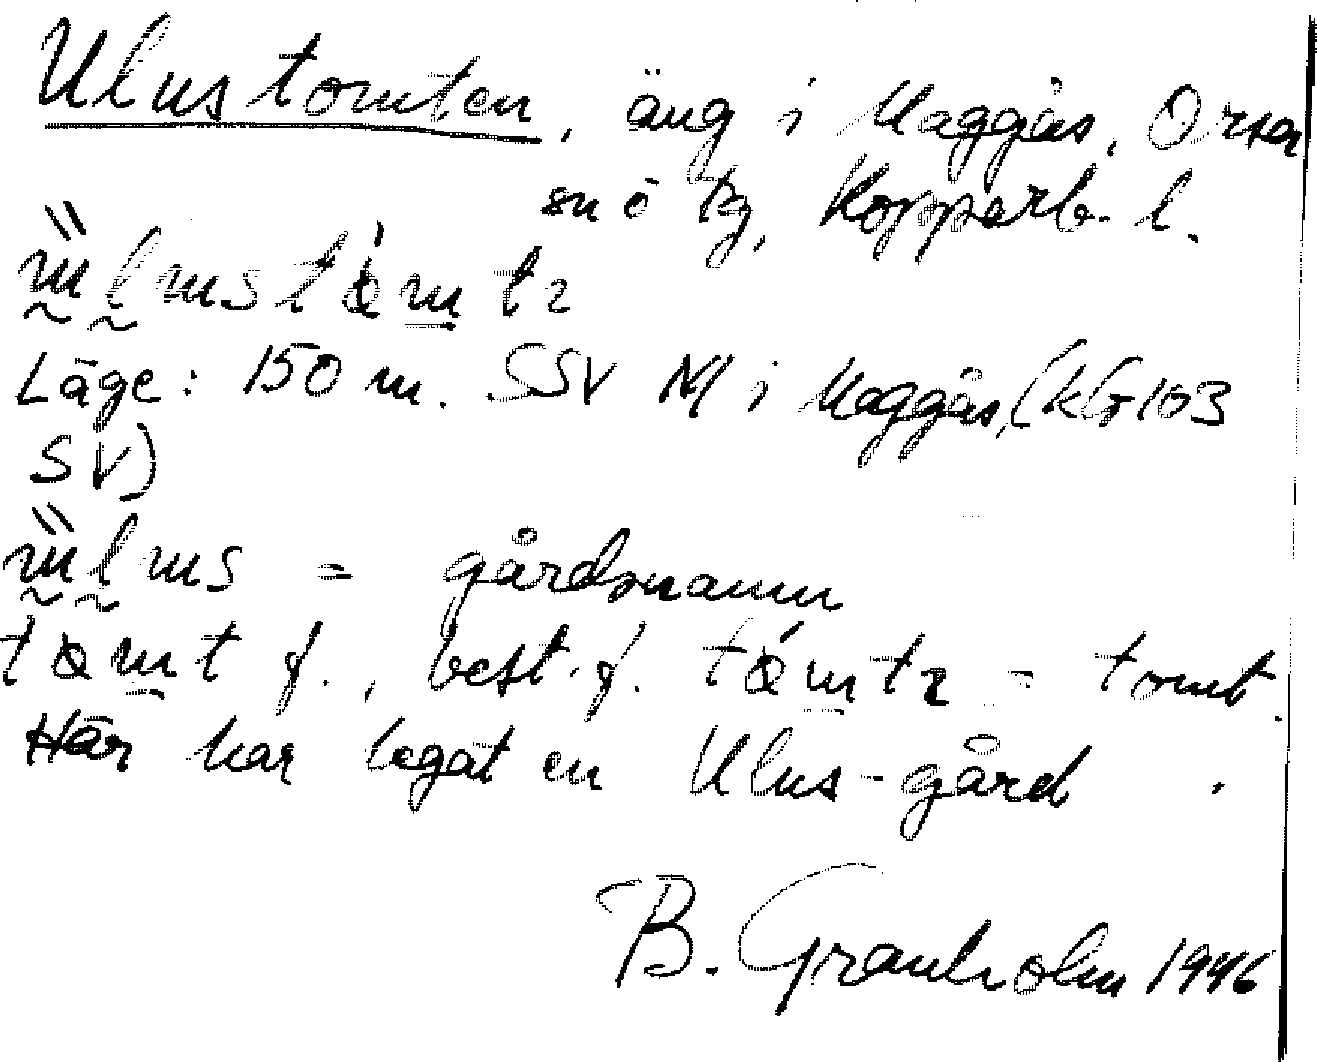 Ulustomten, äng i Maggås, Orsa
sn o tg, Kopparb. l.
Läge: 150 m. SSV M i Maggås, (kG 103
SV)
= gårdsnamn
f., best. f. = tomt.
Här har legat en Ulus-gård.
B. Granholm 1946